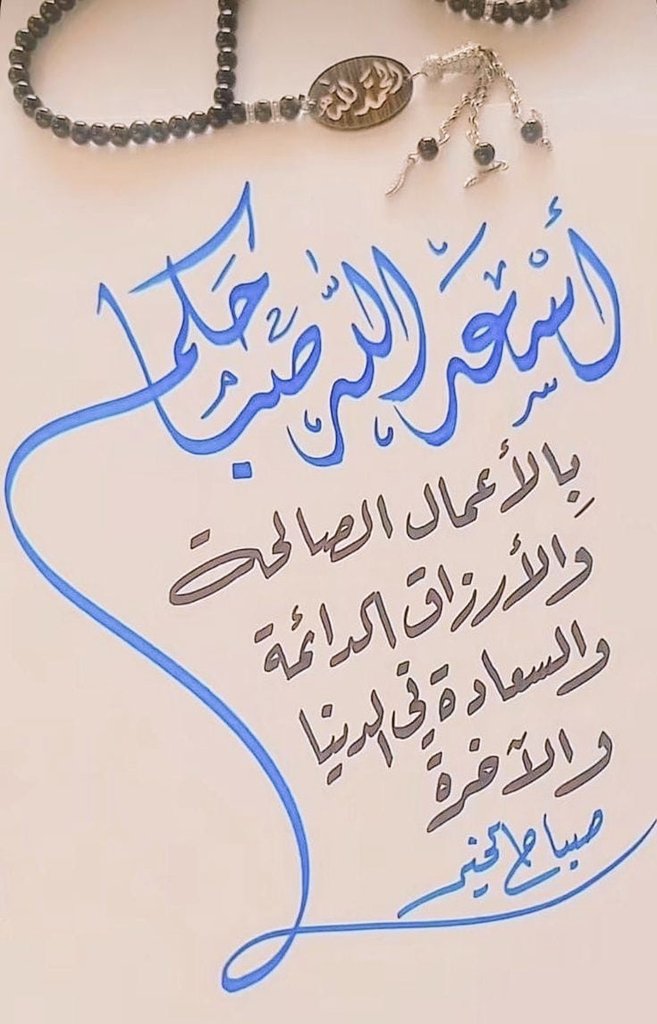 الحمد لله
أَسْعَدَ اللَّه صَبَاحَكم
بِالأعمال الصالحة
والأرزاق الدائمة
والسعادة في الدنيا
والآخرة
صباح الخير